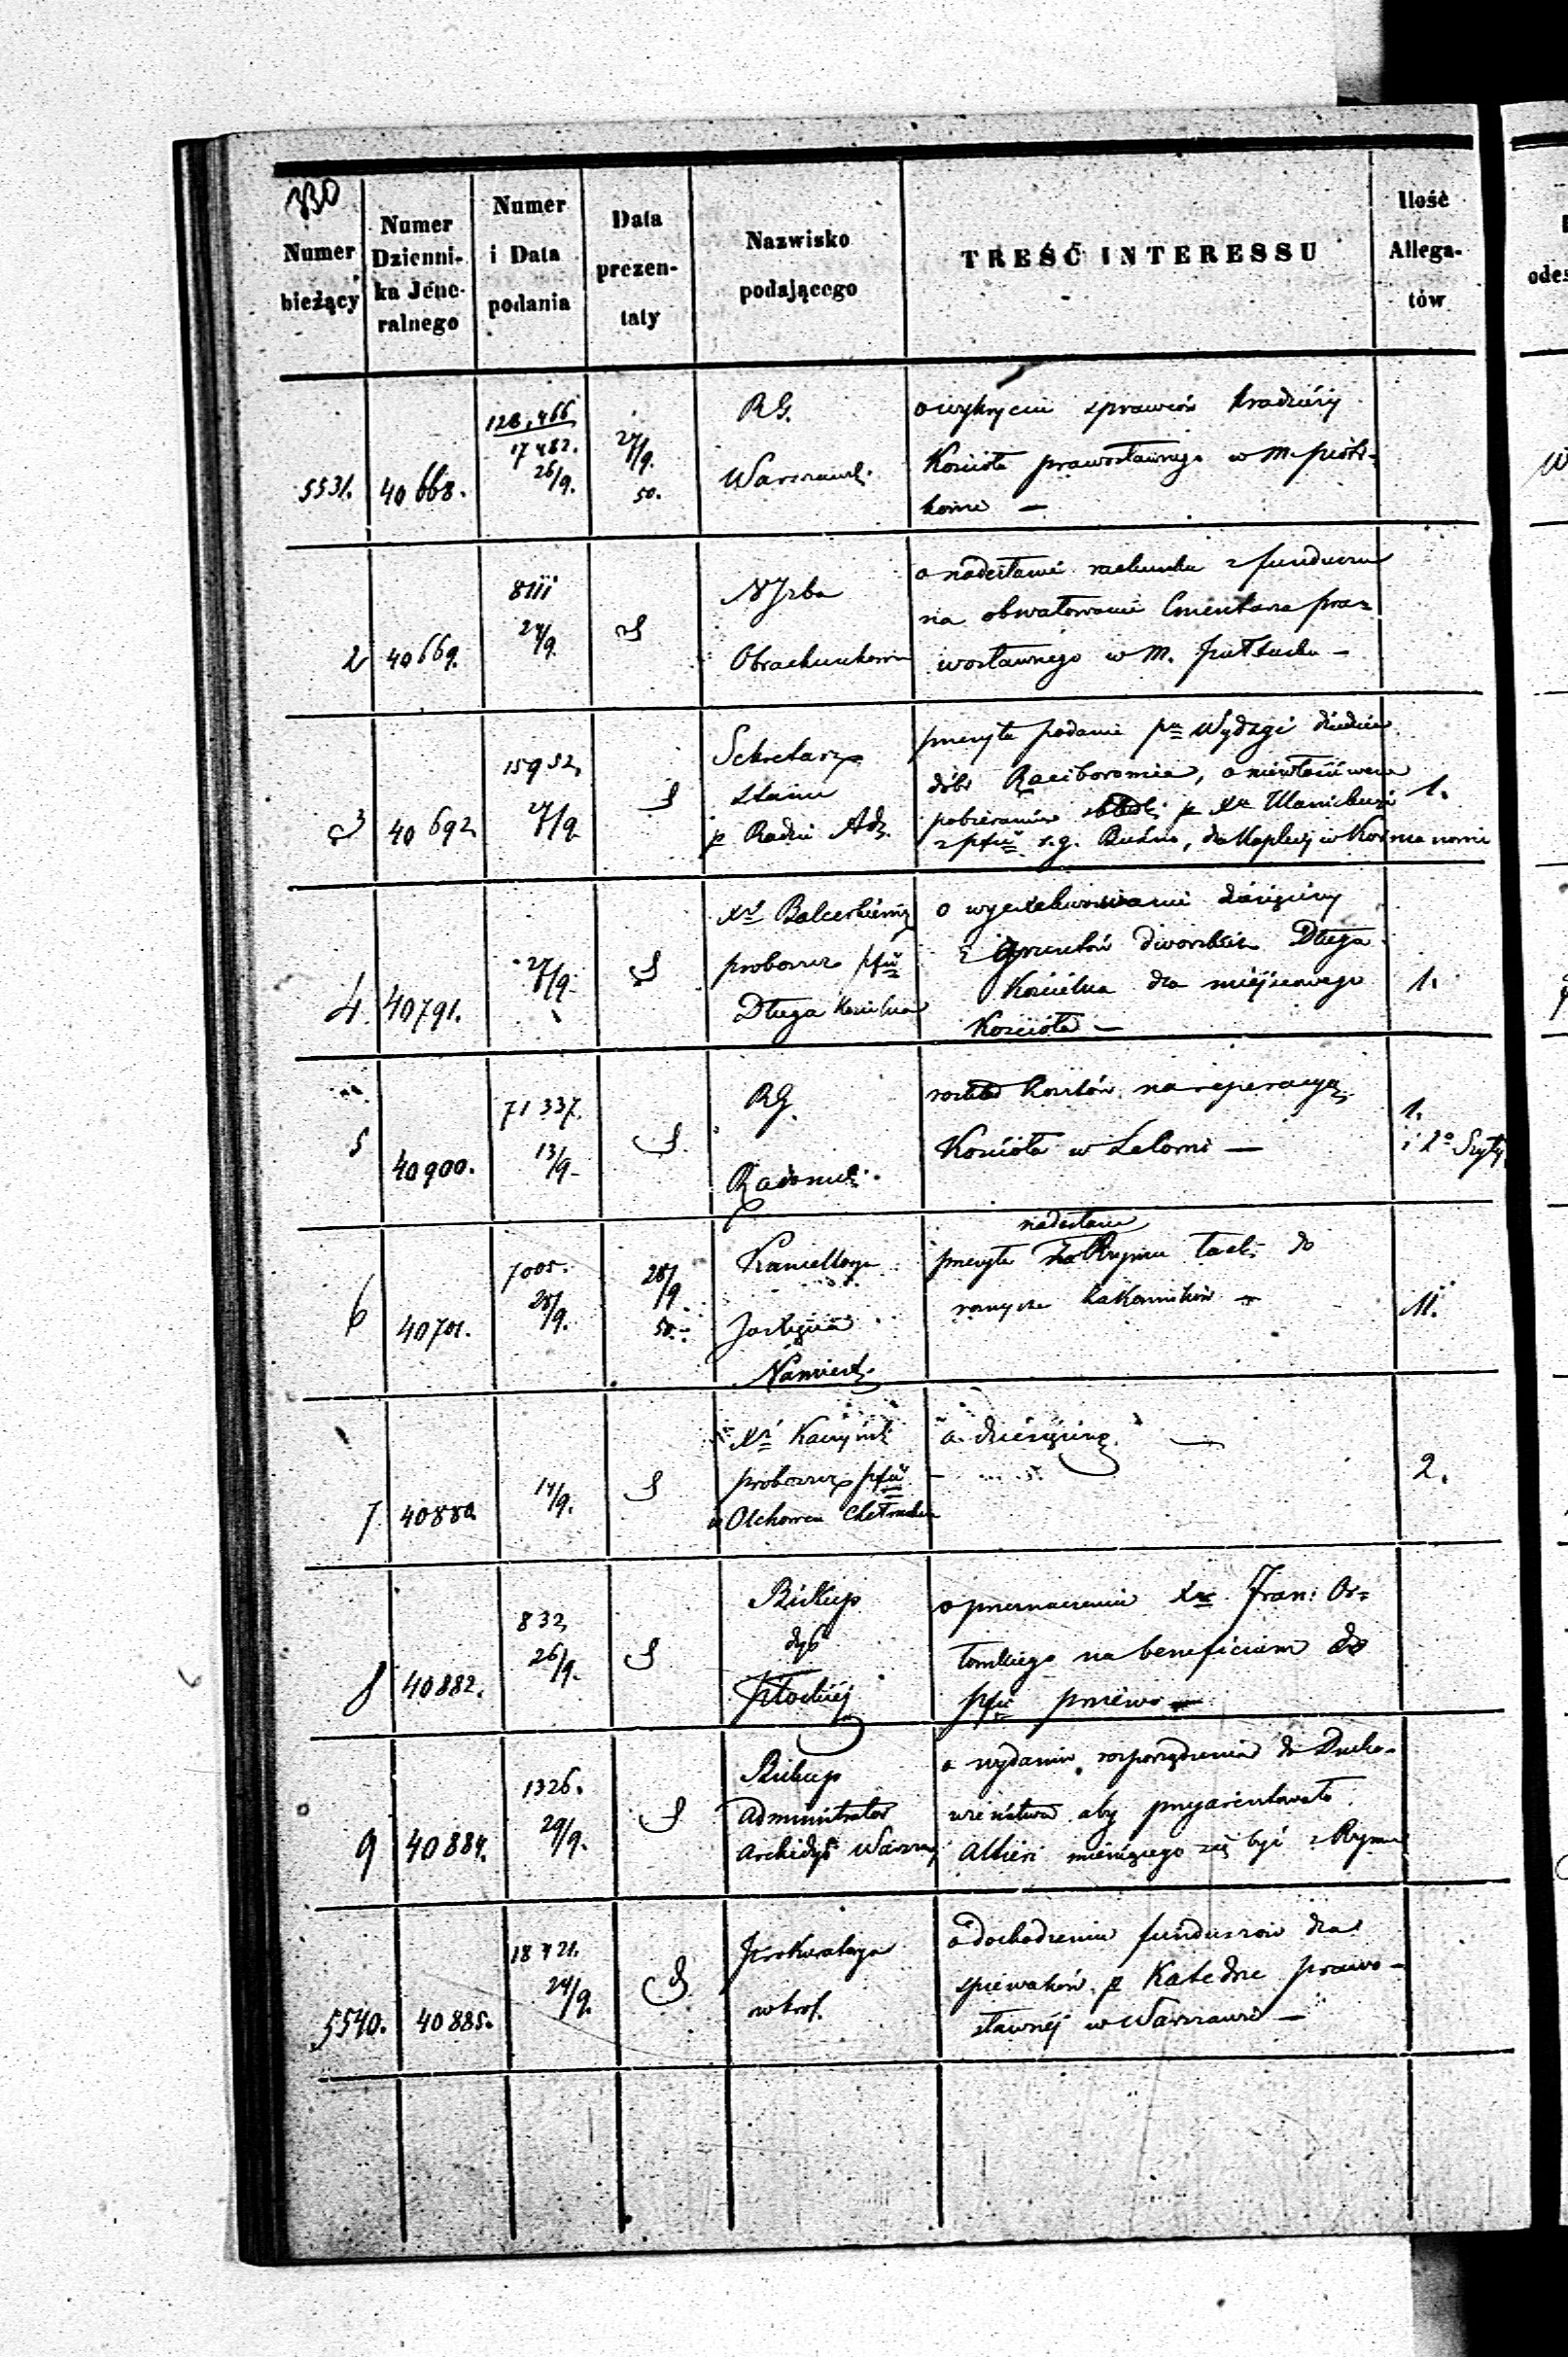 330
Numer bieżący
Numer Dzienni-
ka Jene-
ralnego
Numer i Data podania
Data prezen-
taty
Nazwisko podającego
TREŚĆ INTERESSU
Ilość Allega-
tów
5531. 40668. 17482. 26/9. 27/9. 50. RG. Warszawsk.
o wykryciu sprawców kradzieży
Kościoła prawosławnego w M. Piotr-
kowie —
2 40669. 8111 24/9. NIzba Obrachunkowa
o nadesłanie rachunku z funduszu
na obwałowanie Cmentarza pra-
wosławnego w M. Pułtusku —
3 40692 15952, 27/9 Sekretarz Stanu p Radzie Adz.
przesyła podanie pa Wydzgi dziedzica
dóbr Raciborowice, o niewłaściwem
pobieraniu p Xa
z pfii r. g. Buśno, dla Kaplicy w 1.
4. 40791. 27/9. Xdz Balcerkiewicz
proboszcz pfii
Długa Kościelna
o wyexekwowanie dziesięciny
z gruntów dworskich Długa
Kościelna dla miejscowego 1.
Kościoła —
5 40900. 71337. 13/9. RG. Radomsk.
rozkład kosztów na reperacyą 1.
Kościoła w Lelowie — i 2o Szyty
6 40701. 7005. 28/9. 28/9 50. Kancellarya
Xięcia
Namiest.
nadesłane
przesyła z Rzymu do
zakonników — 11.
7 40880 14/9. Xdz proboszcz pfii
w Olchowcu
o dziesięcinę. — 2.
8 40882. 832, 26/9. Biskup
dyć
Płockiej
o przeznaczenie Xa Fran: Or-
łowskiego na beneficium do
pfii Pniewo —
9 40884. 1326. 29/9. Biskup
administrator
Archidyć Warsza
o wydanie rozporządzenia do Ducho-
wieństwa aby przyaresztowało
Altieri mieniącego się być z Rzymu
5540. 40885. 18721. 24/9. Prokuratorya
w Król.
o dochodzeniu funduszów dla
śpiewaków p Katedrze prawo-
sławnéj w Warszawie —